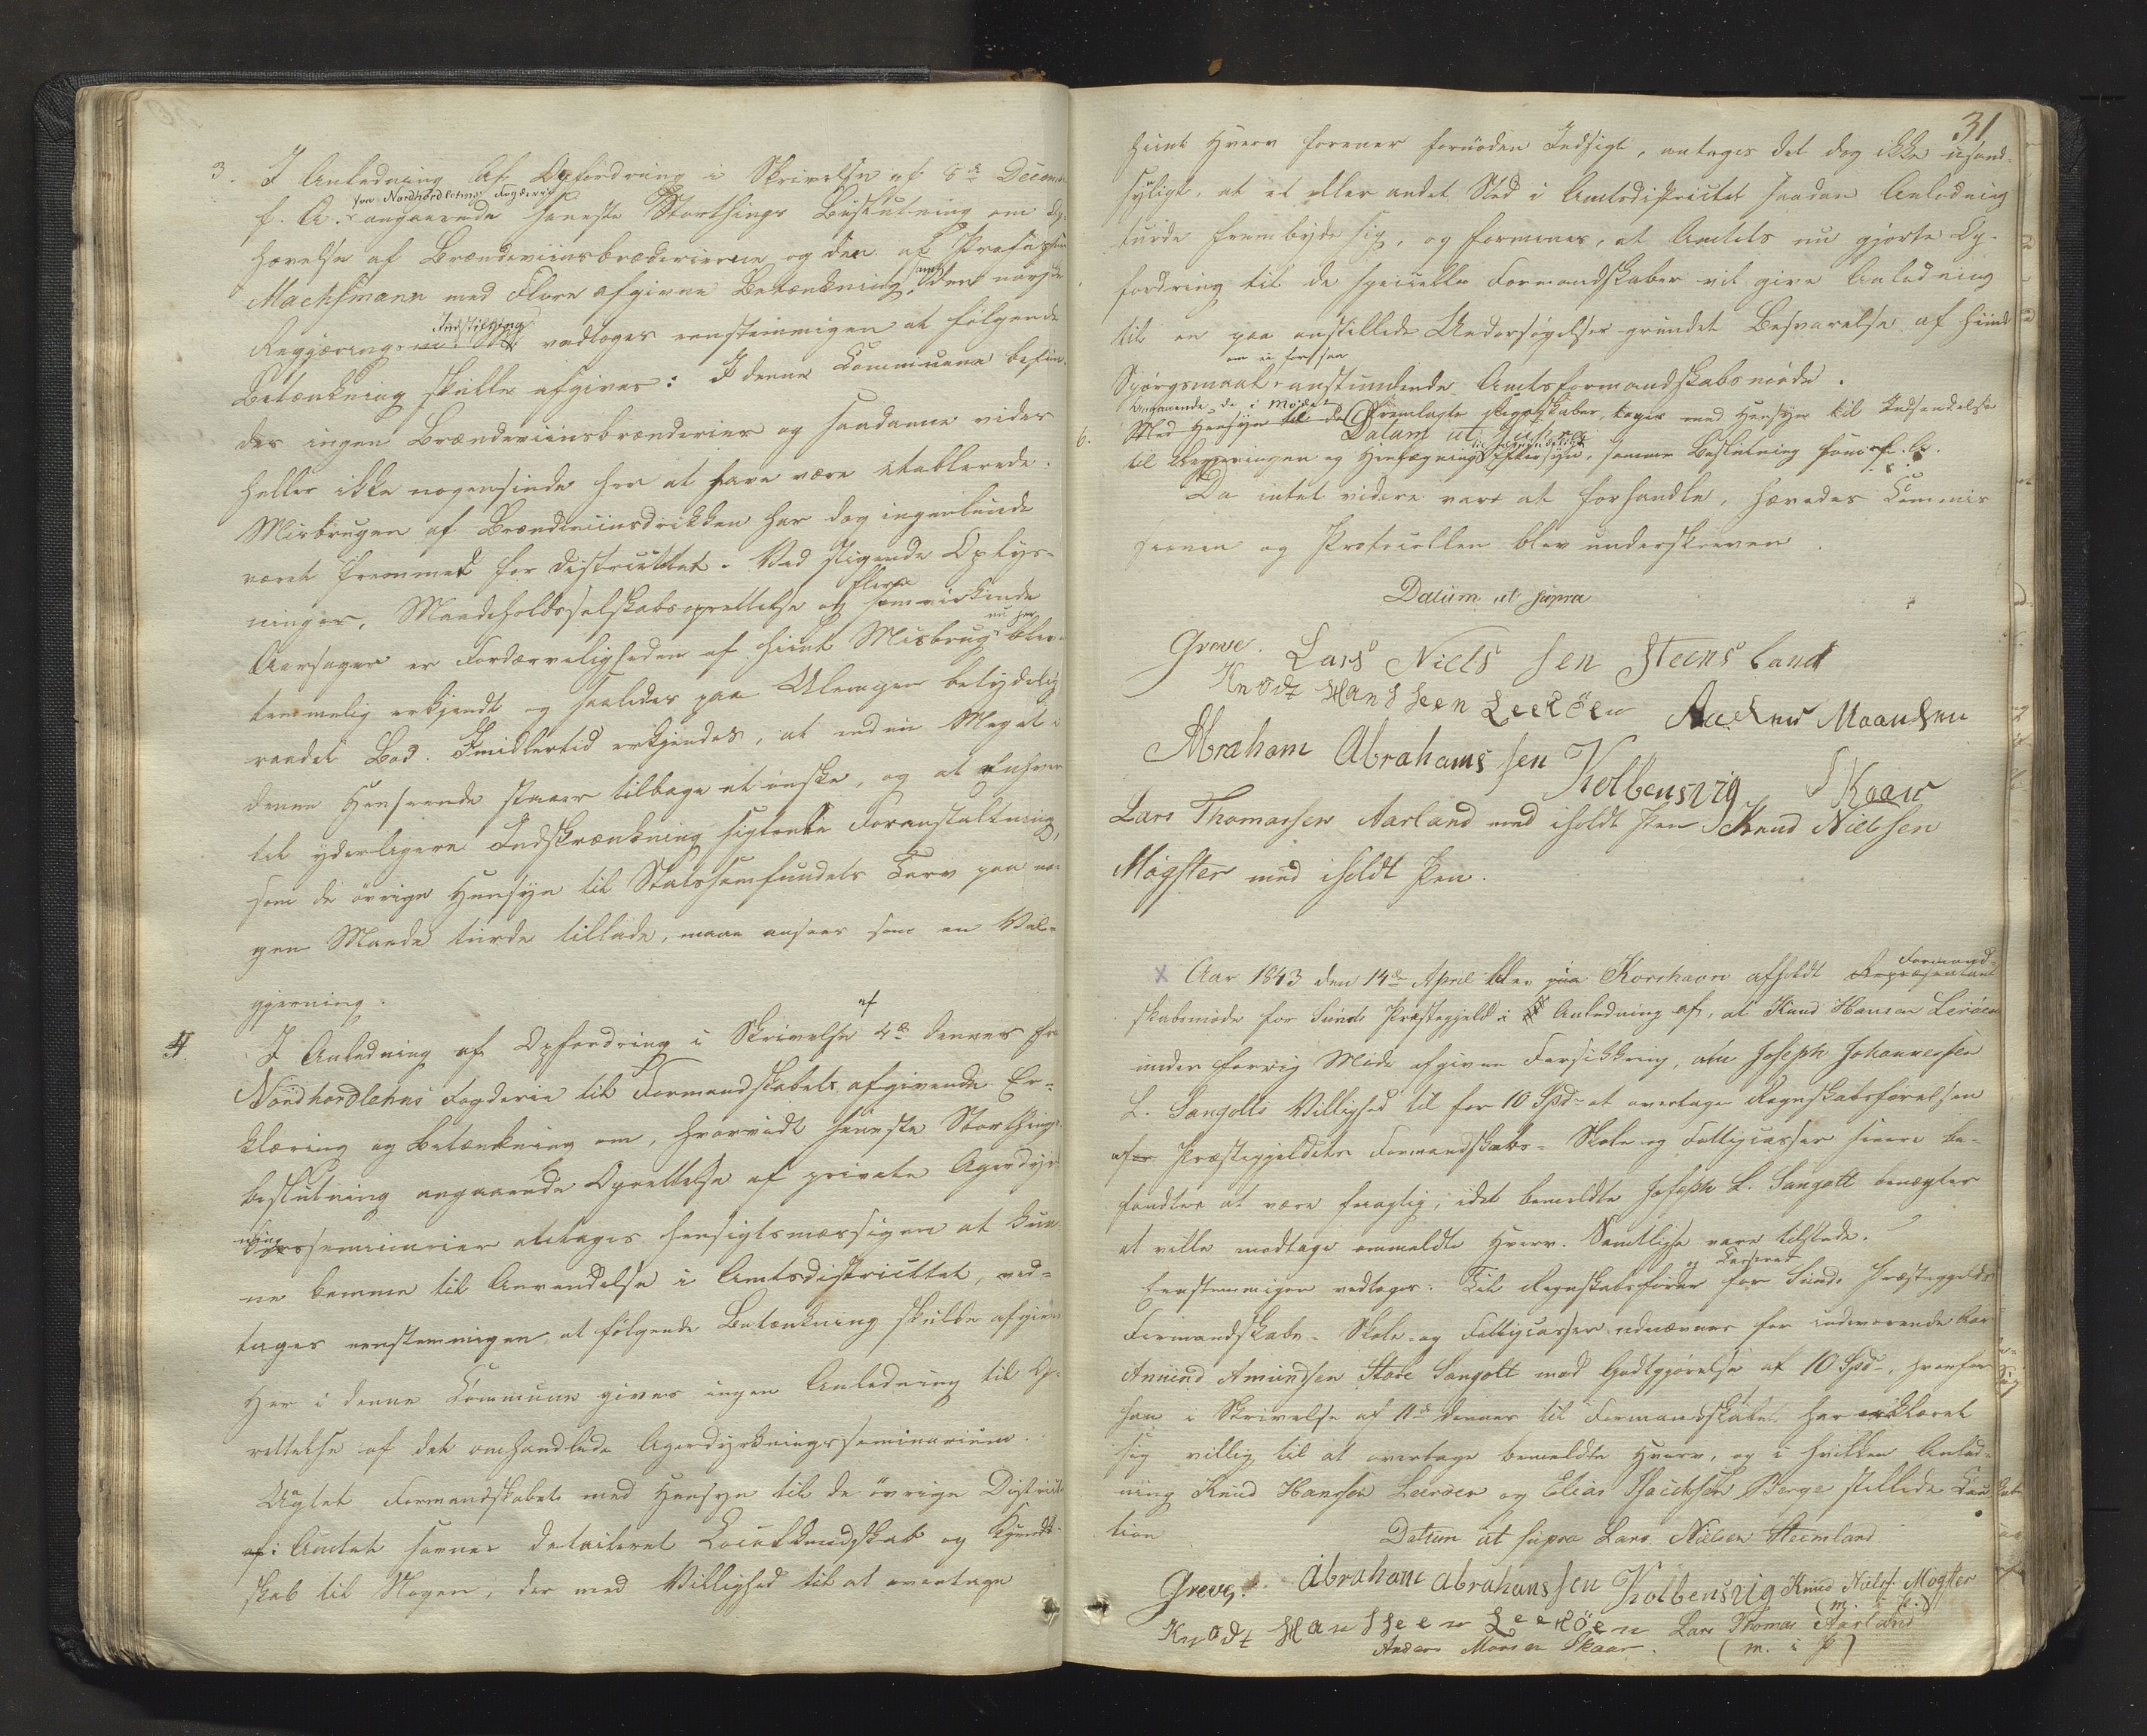 3. I Anledning af Opfordring i Skrivelse af 8de Decemb
f. A. fra Nordhordlehns Fogderie angaaende seneste Storthings Beslutning om Op-
hævelse af Brændeviinsbrænderierne og den af Professor
Machsmann med Flere afgivne Betænkning, samt den norske
Regjerings Indstilling vedtoges eenstemmigen at følgende
Betænkning skulle afgives: I denne Commune befin-
des ingen Brændeviinsbrænderier og saadanne vides
heller ikke nogensinde her at have være etablerede.
Misbrugen af Brændeviinsdrikken har dog ingenlunde
været fremmed for Districtet. Ved stigende Oplys-
ninger, Maadeholdsselskabsoprettelse og flere samvirkende
Aarsager er Fordærveligheden af hiint Misbrug nu her bleven
temmelig erkjendt og saaledes paa Ulempen betydelig
raadet Bod. Imidlertid erkjendes, at endnu Meget i
denne Henseende staaer tilbage at ønske, og at enhver
til yderligere Indskrænkning sigtende Foranstaltning,
som de øvrige Hensyn til Statssamfundets Tarv paa no-
gen Maade turde tillade, maae ansees som en Vel-
gjerning.
4. I Anledning af Opfordring i Skrivelse af 4de dennes fra
Nordhordlehns Fogderie til Formandskabets afgivende Er-
klæring og Betænkning om, hvorvidt seneste Storthings-
beslutning angaaende Oprettelse af private Agerdyrk-
nings seminarier antages hensigtsmæssigen at kun-
ne komme til Anvendelse i Amtsdistrictet, ved-
tages eenstemmigen at følgende Betænkning skulle afgives
Her i denne Commune gives ingen Anledning til Op-
rettelse af det omhandlede Agerdyrkningsseminarium.
Uagtet Formandskabet med Hensyn til de øvrige District
i Amtet savner detailleret Localkundskab og Kjend-
skab til Nogen, der med Villighed til at overtage
31
hiint Hverv forener fornøden Indsigt, antages det dog ikke usand-
synligt, at et eller andet Sted i Amtsdistrictet saadan Anledning
turde frembyde sig, og formenes, at Amtets nu gjorte Op-
fordring til de specielle Formandskaber vil give Anledning
til en paa anstillede Undersøgelser grundet Besvarelse af hiint
Spørgsmaal anstundende Amtsformandskabsmøde.
6. Angaaende de i Mødet fremlagte Regnskaber, tages med Hensyn til Indsendelse
Datum ut supra
til Regjeringen og Eftersyn, samme Beslutning som f. A.
Da intet videre var at forhandle, hævedes Commis
sionen og Protocollen blev underskreven.
Datum ut supra
Greve. Lars Niels sen Steensland
Knødt Hansseen Leeröen Anders Maansen
Abraham Abrahams sen Kolbensvig Skaar
Lars Thomassen Aarland med iholdt Pen Knud Nielsen
Møgster med iholdt Pen.
X Aar 1843 den 14de April blev paa Korshavn afholdt Formand-
skabsmøde for Sunds Præstegjeld i Anledning af, at Knud Hansen Lerøen
under forrig Møde afgivne Forsikkring, om Joseph Johannessen
L. Sangolts Villighed til for 10 Spd at overtage Regnskabsførelsen
af Præstegjeldets Formandskabs- Skole og Fattigcasser senere be-
fandtes at være feilagtig, idet bemeldte Joseph L. Sangolt benægter
at ville modtage ommeldte Hverv. Samtlige vare tilstede.
Eenstemmigen vedtoges: Til Regnskabsfører og Casserer for Sunds Præstegjelds
Formandskabs- Skole- og Fattigcasser udnævnes for indeværende Aar
Amund Amundsen Store Sangolt mod Godtgjørelse af 10 Spd, hvorfor
han i Skrivelse af 11te dennes til Formandskabet har erklæret
sig villig til at overtage bemeldte Hverv, og i hvilken Anled-
ning Knud Hansen Leerøen og Elias Berge stillede Cau-
tion
Datum ut supra Lars Nilsen Steensland
Greve. Abraham abrahanssen Kolbensvig Knud Niels. Møgster
(m. i P.)
Knødt Hansseen Leeröen Lars Thomas Aarland
Anders Monsen Skaar. (m. i P)